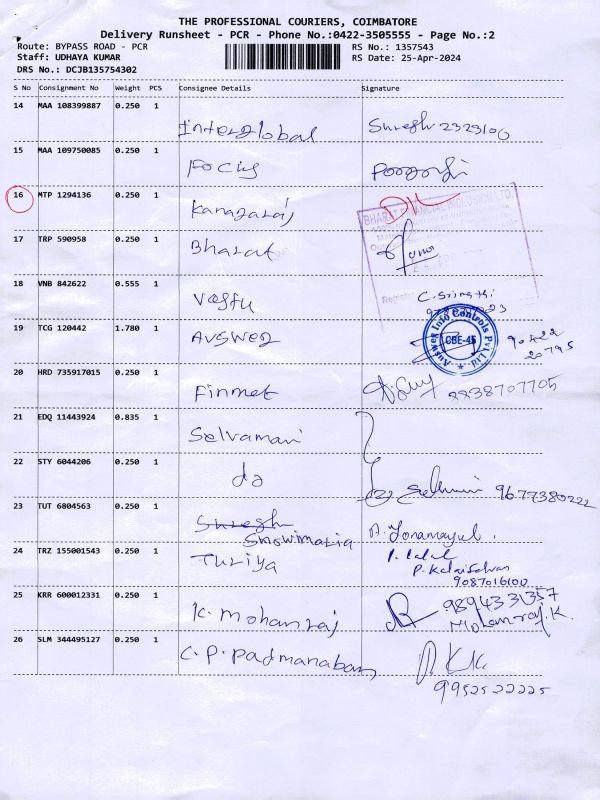 THE PROFESSIONAL COURIERS, COIMBATORE
Delivery Runsheet - PCR - Phone No.:0422-3505555 - Page No.:2
Route: BYPASS ROAD - PCR RS No.: 1357543
Staff: UDHAYA KUMAR RS Date: 25-Apr-2024
DRS No.: DCJB135754302
S No Consignment No Weight PCS Consignee Details Signature
14 MAA 108399887 0.250 1
Interglobal Suresh 2323100
15 MAA 109750085 0.250 1
Focus
16 MTP 1294136 0.250 1
Kanagaraj
BHARAT FINANCIAL INCLUSION LTD.
17 TRP 590958 0.250 1
Bharat
18 VNB 842622 0.555 1
Vastu
19 TCG 120442 1.780 1
Auswez Info Controls Pvt Ltd
CBE-45
Auswez 90422
20795
20 HRD 735917015 0.250 1
Finmet 8838707705
21 EDQ 11443924 0.835 1
Selvamani
22 STY 6044206 0.250 1
do Selvmi 9677380222
23 TUT 6804563 0.250 1
Suresh
Snowimaria
24 TRZ 155001543 0.250 1
Turiya P. Kalaiselvan
9087016100
25 KRR 600012331 0.250 1
K. Mohanraj 9894331357
Mohanraj.K.
26 SLM 344495127 0.250 1
C.P. Padmanaban
9952522225